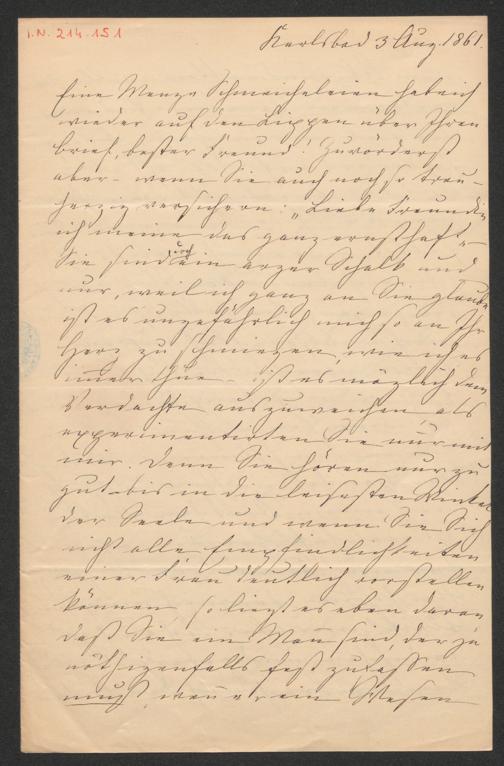 I.N. 214.151
Karlsbad 3 Aug 1861.
Eine Menge Schmeicheleien hab ich
wieder auf den Lippen über Ihren
Brief, bester Freund! Zuvörderst
aber – wenn Sie auch noch so treu-
herzig versichern: „Liebe Freundin
ich meine das ganz ernsthaft" –
Sie sind doch ein arger Schalk und
nur, weil ich ganz an Sie glaube
ist es ungefährlich mich so an Ihr
Herz zu schmiegen, wie ich es
immer thue – ist es möglich dem
Verdachte auszuweichen als
experimentirten Sie nur mit
mir. Denn Sie hören nur zu
gut – bis in die leisesten Winkel
der Seele und wenn Sie Sich
nicht alle Empfindlichkeiten
einer Frau deutlich vorstellen
können so liegt es eben daran
daß Sie ein Mann sind, der ja
nöthigenfalls fest zufassen
muß, wenn er ein Wesen